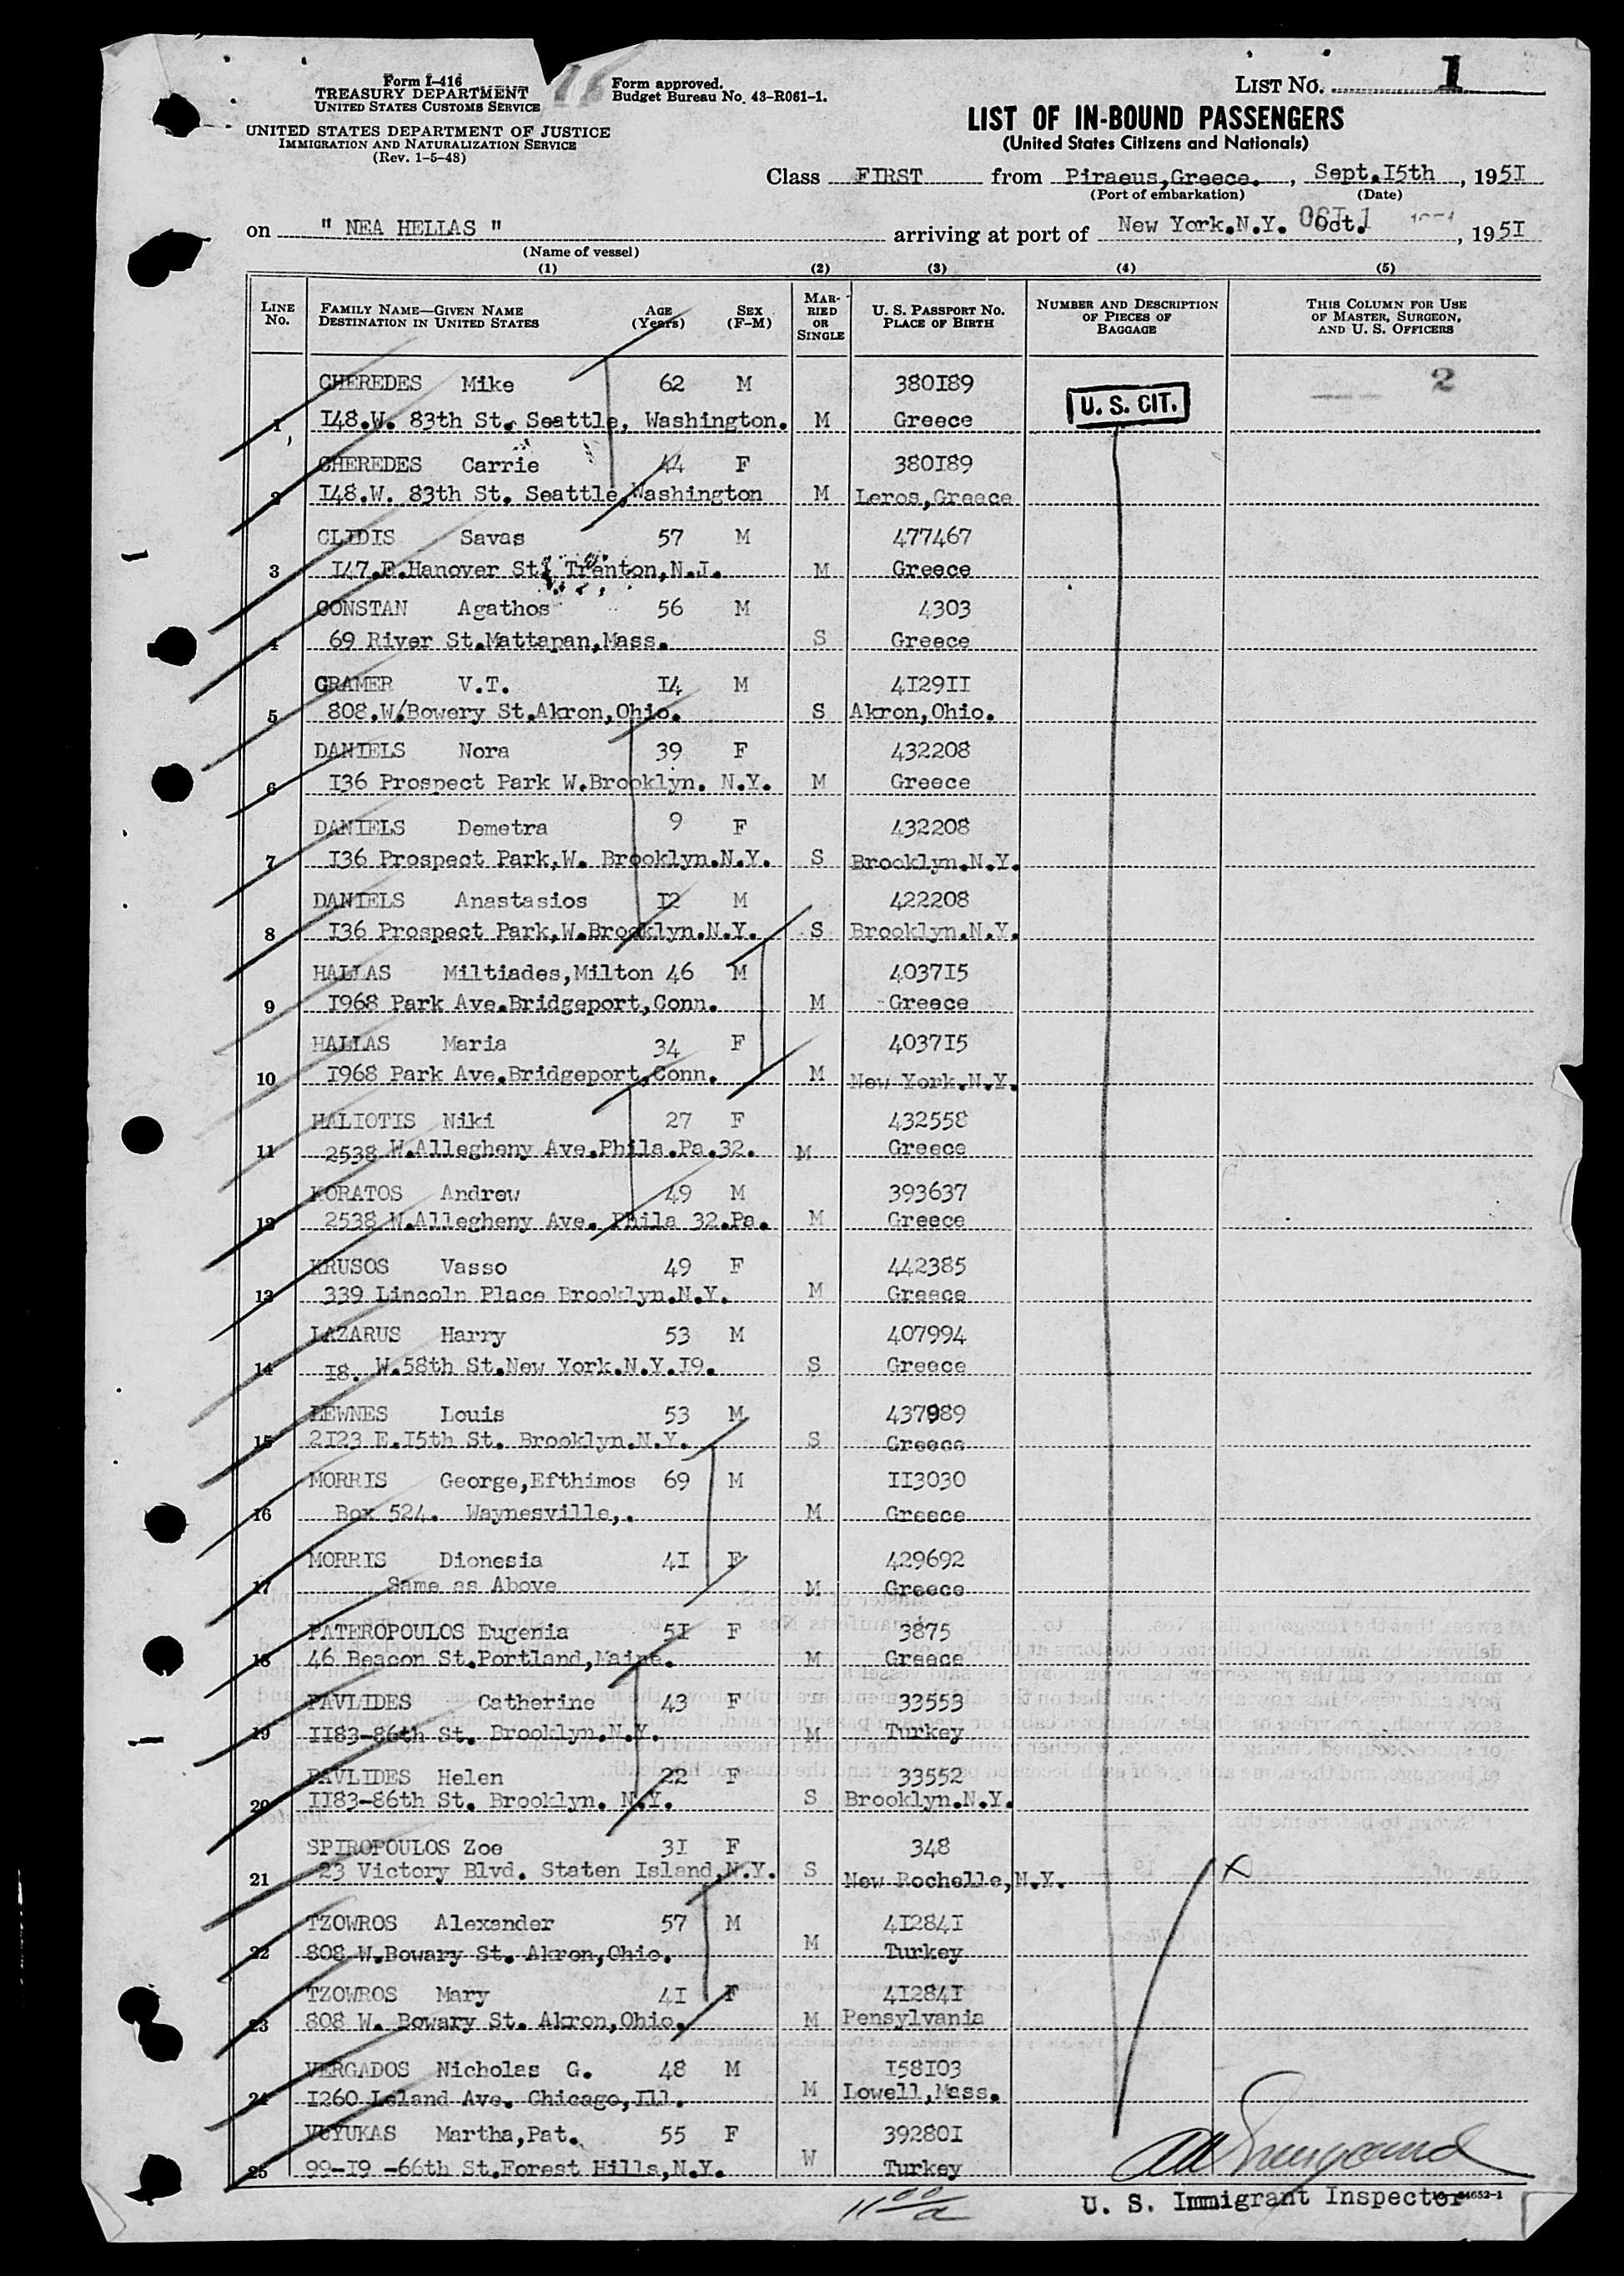 Form I-416
TREASURY DEPARTMENT
UNITED STATES CUSTOMS SERVICE
Form approved.
Budget Bureau No. 43-R061-1.
LIST NO. 1
UNITED STATES DEPARTMENT OF JUSTICE
IMMIGRATION AND NATURALIZATION SERVICE
(Rev. 1-5-48)
LIST OF IN-BOUND PASSENGERS
(United States Citizens and Nationals)
Class FIRST from Piraeus,Greece. , Sept.I5th , 195I
(Port of embarkation) (Date)
on " NEA HELLAS " arriving at port of New York.N.Y. Oct. 1 , 195I
(Name of vessel)
(1) (2) (3) (4) (5)
LINE NO. FAMILY NAME—GIVEN NAME DESTINATION IN UNITED STATES AGE (Years) SEX (F-M) MARRIED OR SINGLE U. S. PASSPORT NO. PLACE OF BIRTH NUMBER AND DESCRIPTION OF PIECES OF BAGGAGE THIS COLUMN FOR USE OF MASTER, SURGEON, AND U. S. OFFICERS
CHEREDES Mike 62 M 380I89 2
1 I48.W. 83th St. Seattle, Washington. M Greece U. S. CIT.
CHEREDES Carrie 44 F 380I89
2 I48.W. 83th St. Seattle,Washington M Leros,Greece
CLIDIS Savas 57 M 477467
3 I47.E.Hanover St. Trenton,N.J. M Greece
CONSTAN Agathos 56 M 4303
4 69 River St.Mattapan,Mass. S Greece
GRAMER V.T. I4 M 4I29II
5 808.W/Bowery St.Akron,Ohio. S Akron,Ohio.
DANIELS Nora 39 F 432208
6 I36 Prospect Park W.Brooklyn. N.Y. M Greece
DANIELS Demetra 9 F 432208
7 I36 Prospect Park,W. Brooklyn.N.Y. S Brooklyn.N.Y.
DANIELS Anastasios I2 M 422208
8 I36 Prospect Park,W.Brooklyn.N.Y. S Brooklyn.N.Y.
HALLAS Miltiades,Milton 46 M 4037I5
9 I968 Park Ave.Bridgeport,Conn. M Greece
HALLAS Maria 34 F 4037I5
10 I968 Park Ave.Bridgeport,Conn. M New York.N.Y.
HALIOTIS Niki 27 F 432558
11 2538 W.Allegheny Ave.Phila.Pa.32. M Greece
KORATOS Andrew 49 M 393637
12 2538 W.Allegheny Ave. Phila 32.Pa. M Greece
KRUSOS Vasso 49 F 442385
13 339 Lincoln Place Brooklyn.N.Y. M Greece
LAZARUS Harry 53 M 407994
14 I8. W.58th St.New York.N.Y.I9. S Greece
LEWNES Louis 53 M 437989
15 2I23 E.I5th St. Brooklyn.N.Y. S Greece
MORRIS George,Efthimos 69 M II3030
16 Box 524. Waynesville,. M Greece
MORRIS Dionesia 4I F 429692
17 Same as Above M Greece
PATEROPOULOS Eugenia 5I F 3875
18 46 Beacon St.Portland,Maine. M Greece
PAVLIDES Catherine 43 F 33553
19 II83-86th St. Brooklyn.N.Y. M Turkey
PAVLIDES Helen 22 F 33552
20 II83-86th St. Brooklyn. N.Y. S Brooklyn.N.Y.
SPIROPOULOS Zoe 3I F 348
21 23 Victory Blvd. Staten Island,N.Y. S New Rochelle,N.Y. X
TZOWROS Alexander 57 M 4I284I
22 808 W.Bowary St. Akron,Ohio. M Turkey
TZOWROS Mary 4I F 4I284I
23 808 W. Bowary St. Akron,Ohio. M Pensylvania
VERGADOS Nicholas G. 48 M I58I03
24 I260 Leland Ave. Chicago,Ill. M Lowell,Mass.
VUYUKAS Martha,Pat. 55 F 39280I
25 99-I9 -66th St.Forest Hills,N.Y. W Turkey
U. S. Immigrant Inspector